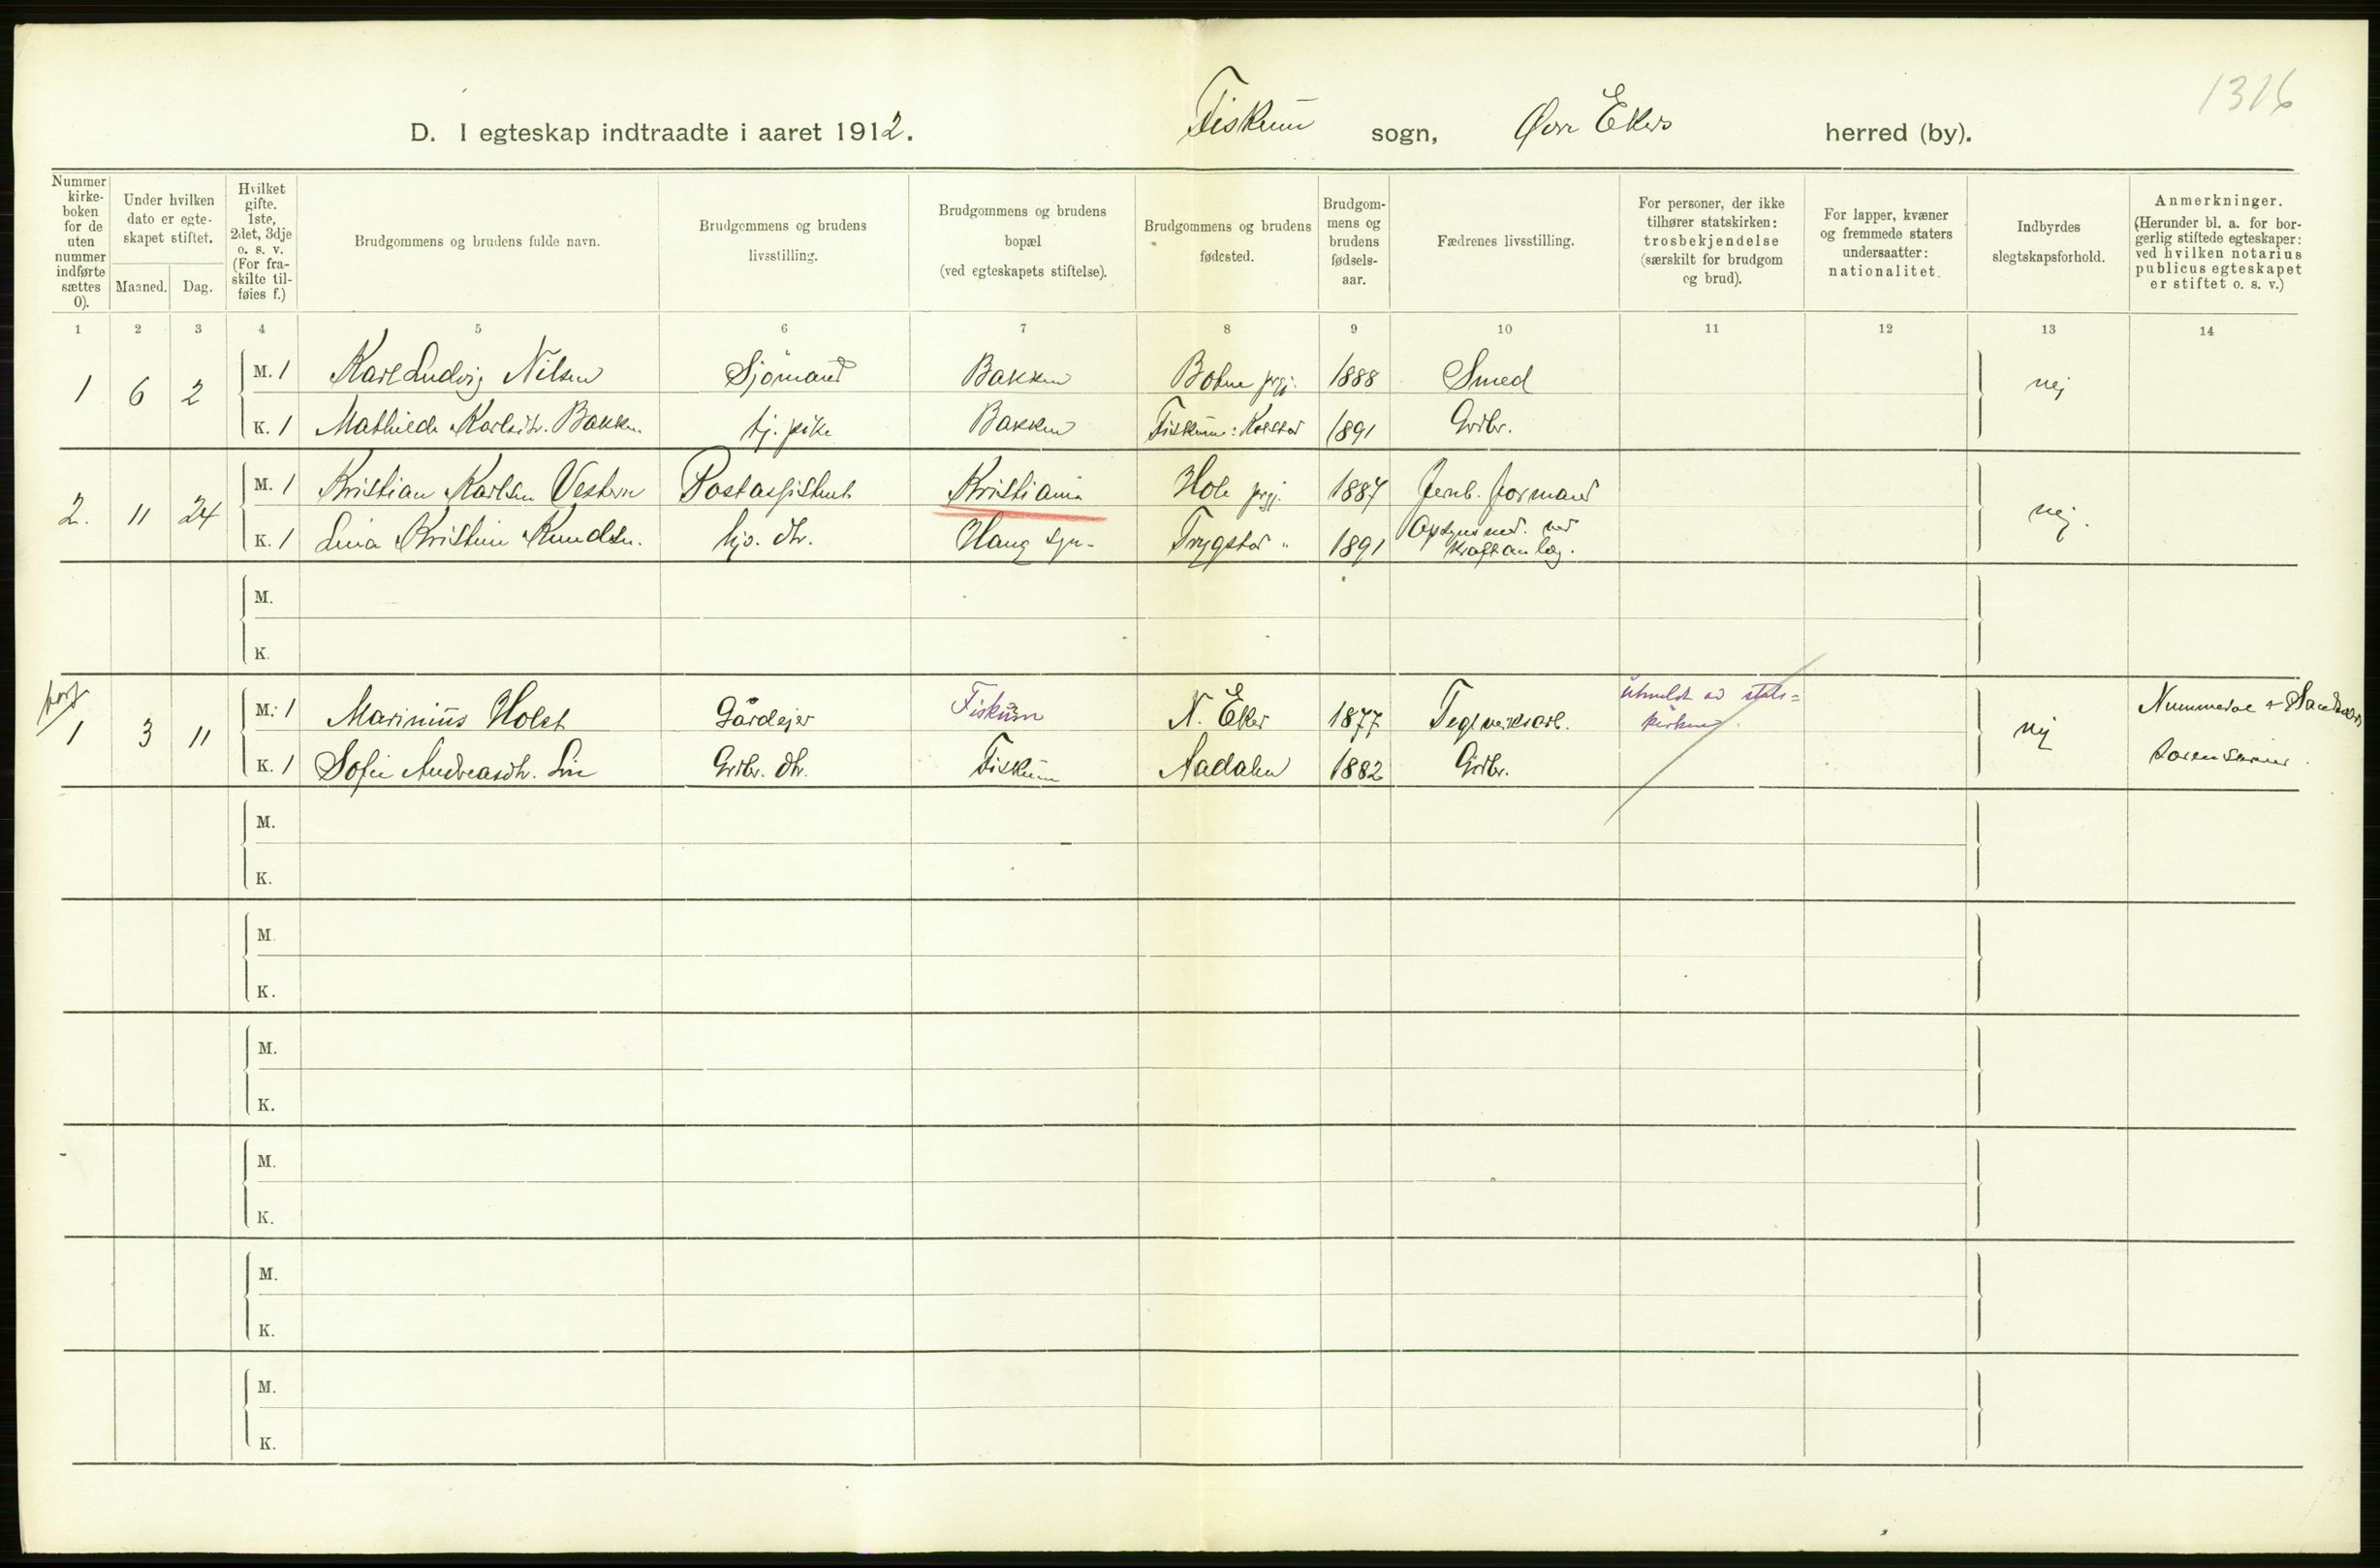 1316
D. I egteskap indtraadte i aaret 1912. Fiskum sogn, Øvre Ekers herred (by).
Nummer kirke-boken for de uten nummer indførte sættes 0).
Under hvilken dato er egte-skapet stiftet.
Maaned. Dag.
Hvilket gifte. 1ste, 2det, 3dje o. s. v. (For fra-skilte til-føies f.)
Brudgommens og brudens fulde navn.
Brudgommens og brudens livsstilling.
Brudgommens og brudens bopæl (ved egteskapets stiftelse).
Brudgommens og brudens fødested.
Brudgom-mens og brudens fødsels-aar.
Fædrenes livsstilling.
For personer, der ikke tilhører statskirken: trosbekjendelse (særskilt for brudgom og brud).
For lapper, kvæner og fremmede staters undersaatter: nationalitet.
Indbyrdes slegtskapsforhold.
Anmerkninger. (Herunder bl. a. for bor-gerlig stiftede egteskaper: ved hvilken notarius publicus egteskapet er stiftet o. s. v.)
1 2 3 4 5 6 7 8 9 10 11 12 13 14
1 6 2 M. 1 Karl Ludvig Nilsen Sjömand Bakken Botne prgj. 1888 Smed nej
K. 1 Mathilde Karlsdtr. Bakken tj. pike Bakken Fiskum: Kolstad 1891 Grdbr.
2. 11 24 M. 1 Kristian Karlsen Vestern Postassistent Kristiania Hole prgj. 1887 Jernb. formand nej.
K. 1 Lina Kristine Knudsen. hjv. dtr. Haug sgn. Trygstad " 1891 Opsynsmd. ved
kraftanlæg.
M.
K.
1 3 11 M. 1 Marinius Holst Gårdejer Fiskum N. Eker 1877 Teglverksarb. utmeldt av stats=
kirken. nej Nummedal & Sandsværs
K. 1 Sofie Andreasdtr. Lie Grdbr. dtr. Fiskum Aadalen 1882 Grdbr. sorenskriver.
M.
K.
M.
K.
M.
K.
M.
K.
M.
K.
M.
K.